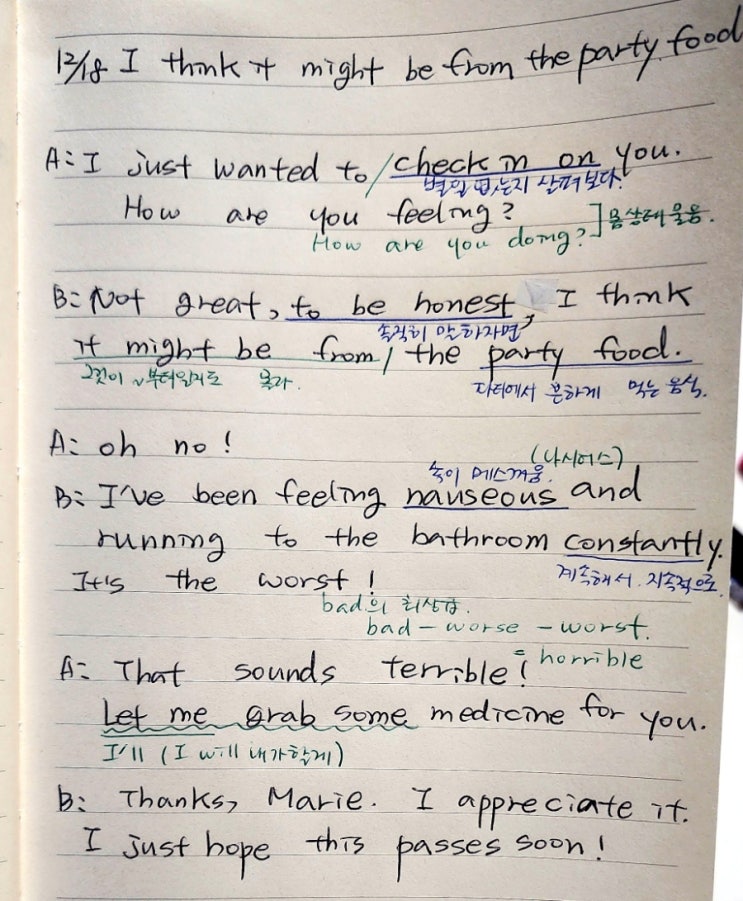 12/18 I think it might be from the party food
A: I just wanted to / check in on you.
별일 없는지 살펴보다.
How are you feeling?
How are you doing? ] 몸상태 물음.
B: Not great, to be honest, I think
솔직히 말하자면
it might be from / the party food.
그것이 ~부터일지도 몰라.
파티에서 흔하게 먹는 음식.
A: oh no!
(나시어스)
속이 메스꺼움.
B: I've been feeling nauseous and
running to the bathroom constantly.
계속해서. 지속적으로.
It's the worst!
bad의 최상급.
bad - worse - worst.
A: That sounds terrible!
= horrible
Let me grab some medicine for you.
I'll (I will 내가할게)
B: Thanks, Marie. I appreciate it.
I just hope this passes soon!